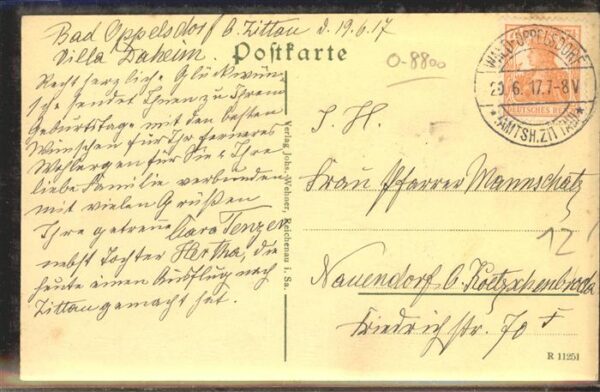 Bad Oppelsdorf b. Zittau d. 19.6.17
Villa Daheim.
Postkarte
Recht herzliche Glückwün-
sche sendet Ihnen zu Ihrem
Geburtstage mit den besten
Wünschen für Ihr ferneres
Wohlergen für Sie u. Ihre
liebe Familie verbunden
mit vielen Grüßen
Ihre getreue Clara Tenzer
nebst Tochter Hertha, die
heute einen Ausflug nach
Zittau gemacht hat.
Verlag Johs. Wehner, Reichenau i. Sa.
O-8800
WALD-OPPELSDORF
20.6.17.7-8V
* (AMTSH. ZITTAU) *
DEUTSCHES REICH
Frau Pfarrer Mannschatz
12
Nauendorf b. Kötzschenbroda
Friedrichstr. 70
R 11251